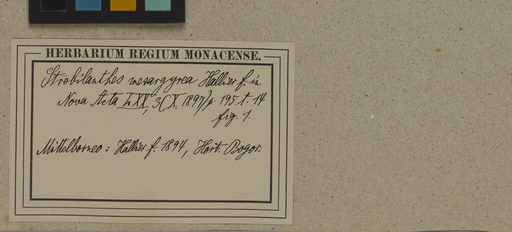 HERBARIUM REGIUM MONACENSE.
Strobilanthes mesargyrea Hallier f. in
Nova Acta LXX, 3 (X. 1897) p. 195. t. 14
fig. 1.
Mittelborneo: Hallier f. 1894, Hort. Bogor.